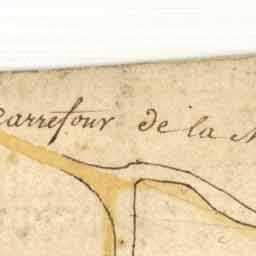 Carrefour de la